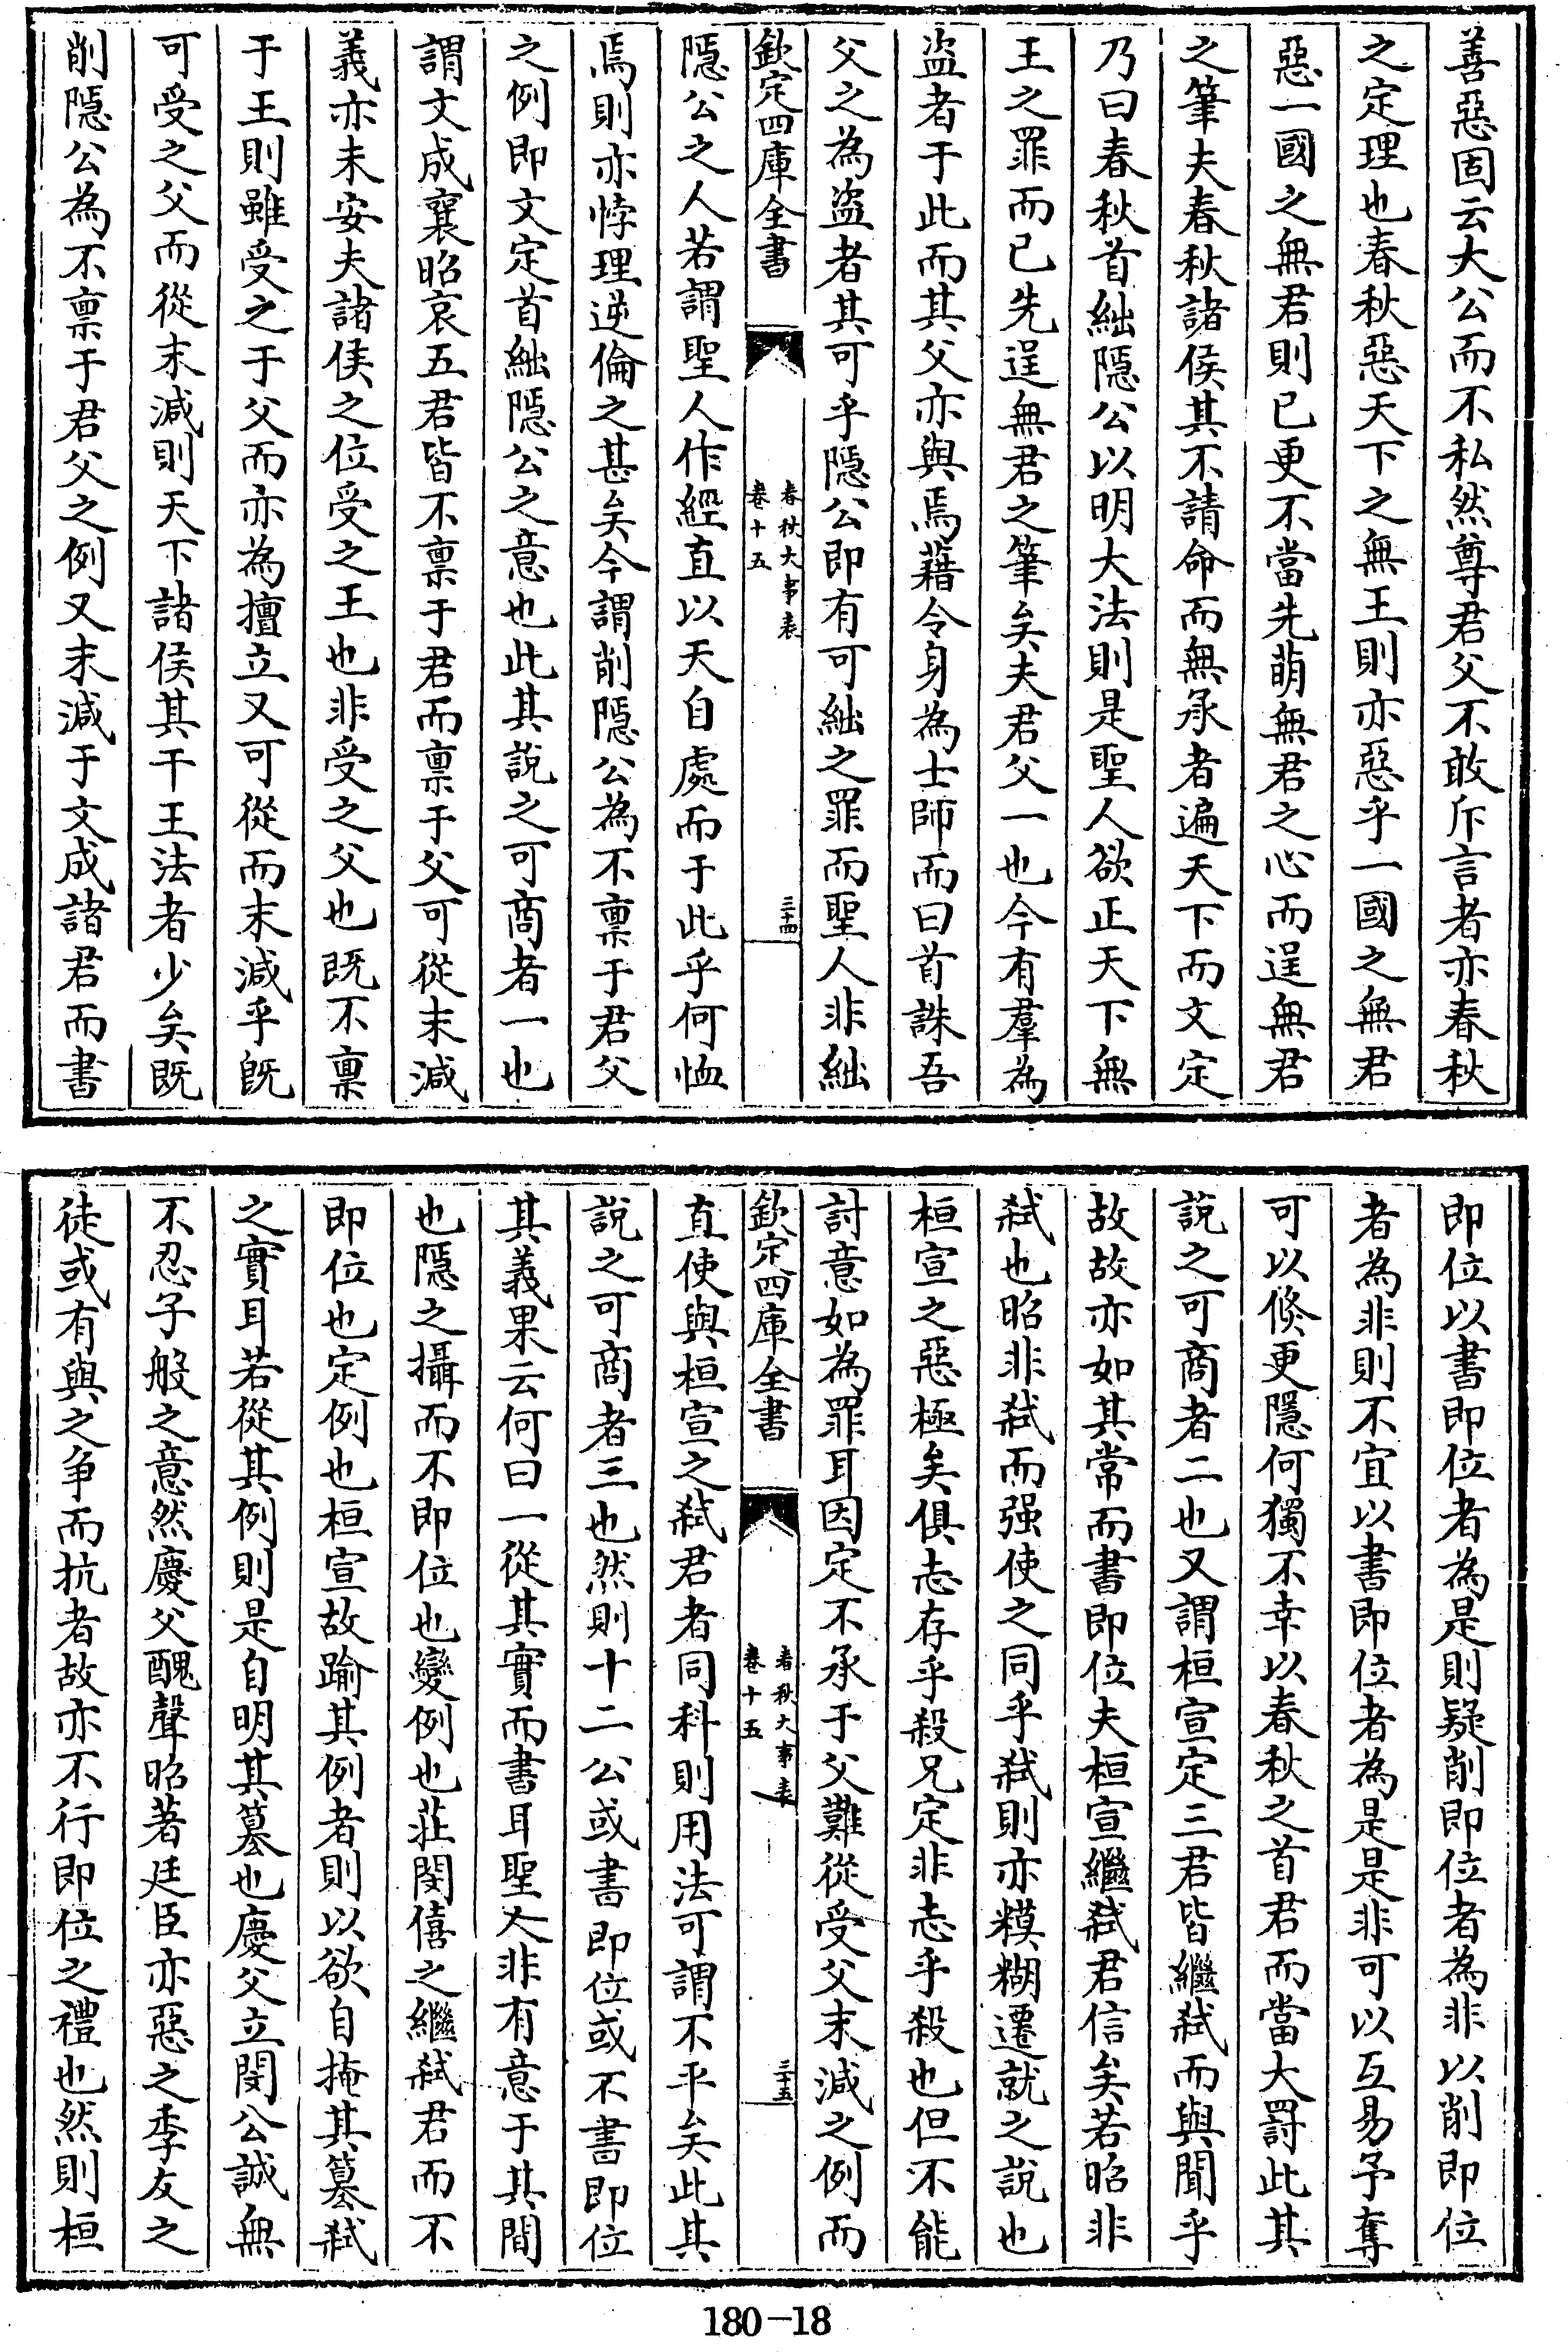 善惡固云大公而不私然尊君父不敢斥言者亦春秋
之定理也春秋惡天下之無王則亦惡乎一國之無君
惡一國之無君則已更不當先萌無君之心而逞無君
之筆夫春秋諸侯其不請命而無承者遍天下而文定
乃曰春秋首絀隱公以明大法則是聖人欲正天下無
王之罪而已先逞無君之筆矣夫君父一也今有羣為
盜者于此而其父亦與焉藉令身為士師而曰首誅吾
父之為盜者其可乎隱公即有可絀之罪而聖人非絀
欽定四庫全書
春秋大事表
卷十五
三十四
隱公之人若謂聖人作經直以天自處而于此乎何恤
焉則亦悖理逆倫之甚矣今謂削隱公為不稟于君父
之例即文定首絀隱公之意也此其說之可商者一也
謂文成襄昭哀五君皆不稟于君而稟于父可從末減
義亦未安夫諸侯之位受之王也非受之父也既不稟
于王則雖受之于父而亦為擅立又可從而末減乎既
可受之父而從末減則天下諸侯其干王法者少矣既
削隱公為不稟于君父之例又末減于文成諸君而書
即位以書即位者為是則疑削即位者為非以削即位
者為非則不宜以書即位者為是是非可以互易予奪
可以倏更隱何獨不幸以春秋之首君而當大罸此其
說之可商者二也又謂桓宣定三君皆繼弑而與聞乎
故故亦如其常而書即位夫桓宣繼弑君信矣若昭非
弑也昭非弑而强使之同乎弑則亦糢糊遷就之說也
桓宣之惡極矣俱志存乎殺兄定非志乎殺也但不能
討意如為罪耳因定不承于父難從受父末減之例而
欽定四庫全書
春秋大事表
卷十五
三十五
直使與桓宣之弑君者同科則用法可謂不平矣此其
說之可商者三也然則十二公或書即位或不書即位
其義果云何曰一從其實而書耳聖人非有意于其間
也隱之攝而不即位也變例也莊閔僖之繼弑君而不
即位也定例也桓宣故踰其例者則以欲自掩其篡弑
之實耳若從其例則是自明其篡也慶父立閔公誠無
不忍子般之意然慶父醜聲昭著廷臣亦惡之季友之
徒或有與之争而抗者故亦不行即位之禮也然則桓
180-18